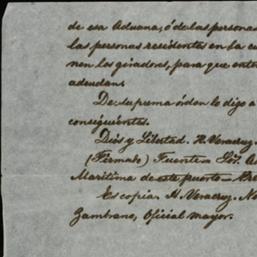 de esa Aduana, ó de las personas
las personas residentes en la cu
nen los giradores, para que ente
adeudan.
De suprema órden lo digo a
consiguientes.
Dios y Libertad. H. Veracruz.
(Firmado) Fuente=
Maritima de este puerto=
Es copia. H. Veracruz. No
Zambrano, Oficial mayor.